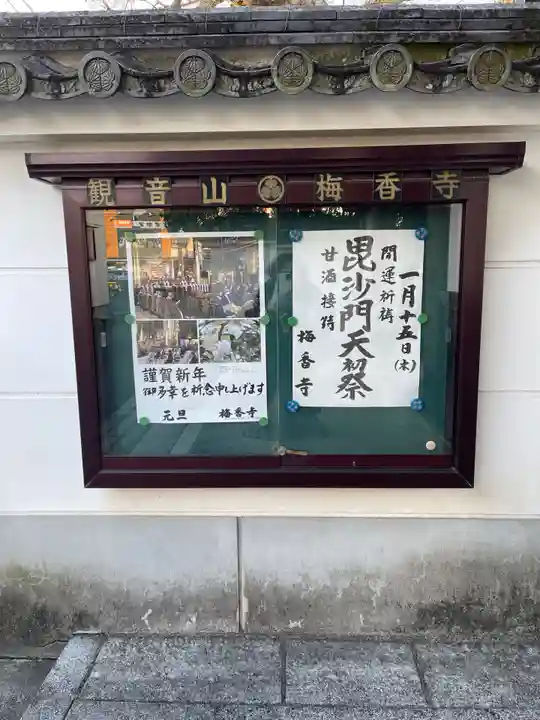 観音山 梅香寺
謹賀新年
御多幸を祈念申し上げます
元旦 梅香寺
一月十五日(木)
開運祈祷
毘沙門天初祭
甘酒接待
梅香寺